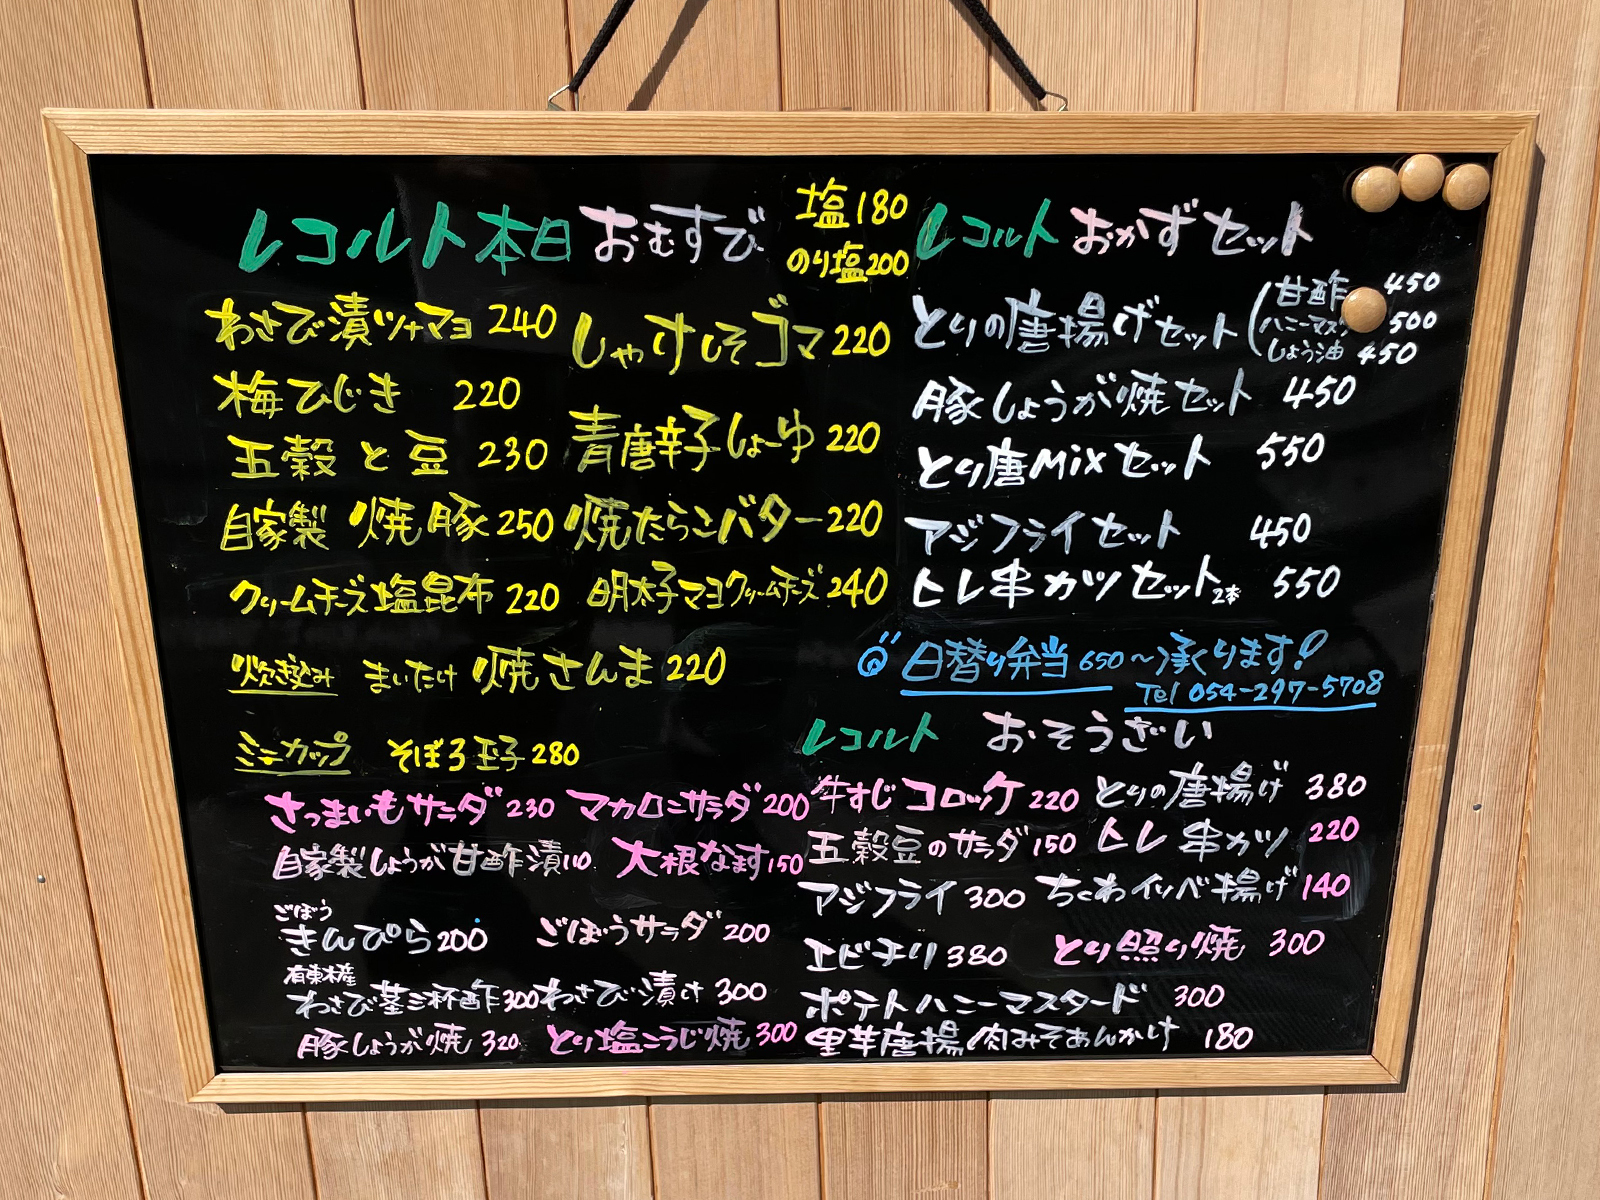 レコルト本日おむすび
塩180
のり塩200
わさび漬ツナマヨ 240
しゃけしそゴマ 220
梅ひじき 220
青唐辛子しょーゆ 220
五穀と豆 230
自家製 焼豚 250
焼たらこバター 220
クリームチーズ塩昆布 220
明太子マヨクリームチーズ 240
炊き込み まいたけ 焼さんま 220
ミニカップ そぼろ玉子 280
レコルト おかずセット
とりの唐揚げセット
甘酢 450
ハニーマスタ 500
しょう油 450
豚しょうが焼セット 450
とり唐Mixセット 550
アジフライセット 450
ヒレ串カツセット2本 550
日替り弁当650〜承くります!
Tel 054-297-5708
レコルト おそうざい
さつまいもサラダ 230
マカロニサラダ 200
牛すじコロッケ 220
とりの唐揚げ 380
自家製しょうが甘酢漬 110
大根なます 150
五穀豆のサラダ 150
ヒレ串カツ 220
アジフライ 300
ちくわイソベ揚げ 140
ごぼう
きんぴら 200
ごぼうサラダ 200
エビチリ 380
とり照り焼 300
有東木産
わさび茎三杯酢 300
わさび漬け 300
ポテトハニーマスタード 300
豚しょうが焼 320
とり塩こうじ焼 300
里芋唐揚 肉みそあんかけ 180